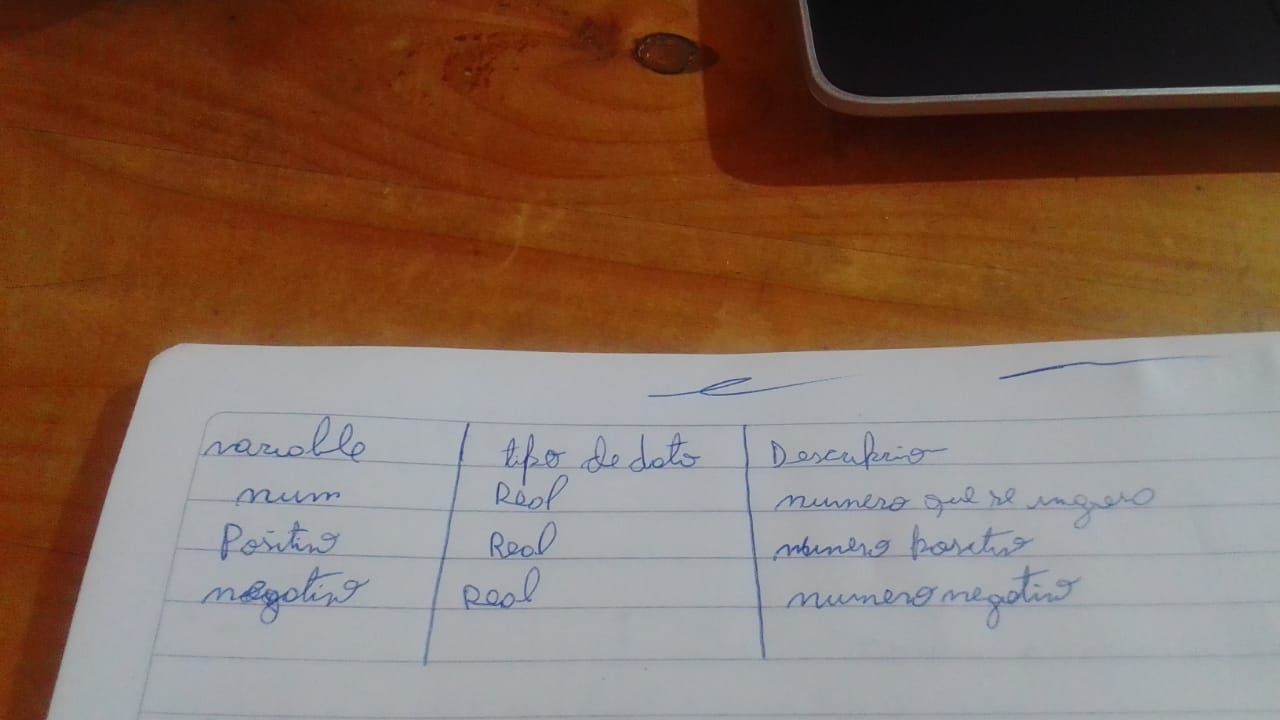 variable tipo de dato Descripcio
num Real numero que se ingreso
Positivo Real numero positivo
negativo Real numero negativo